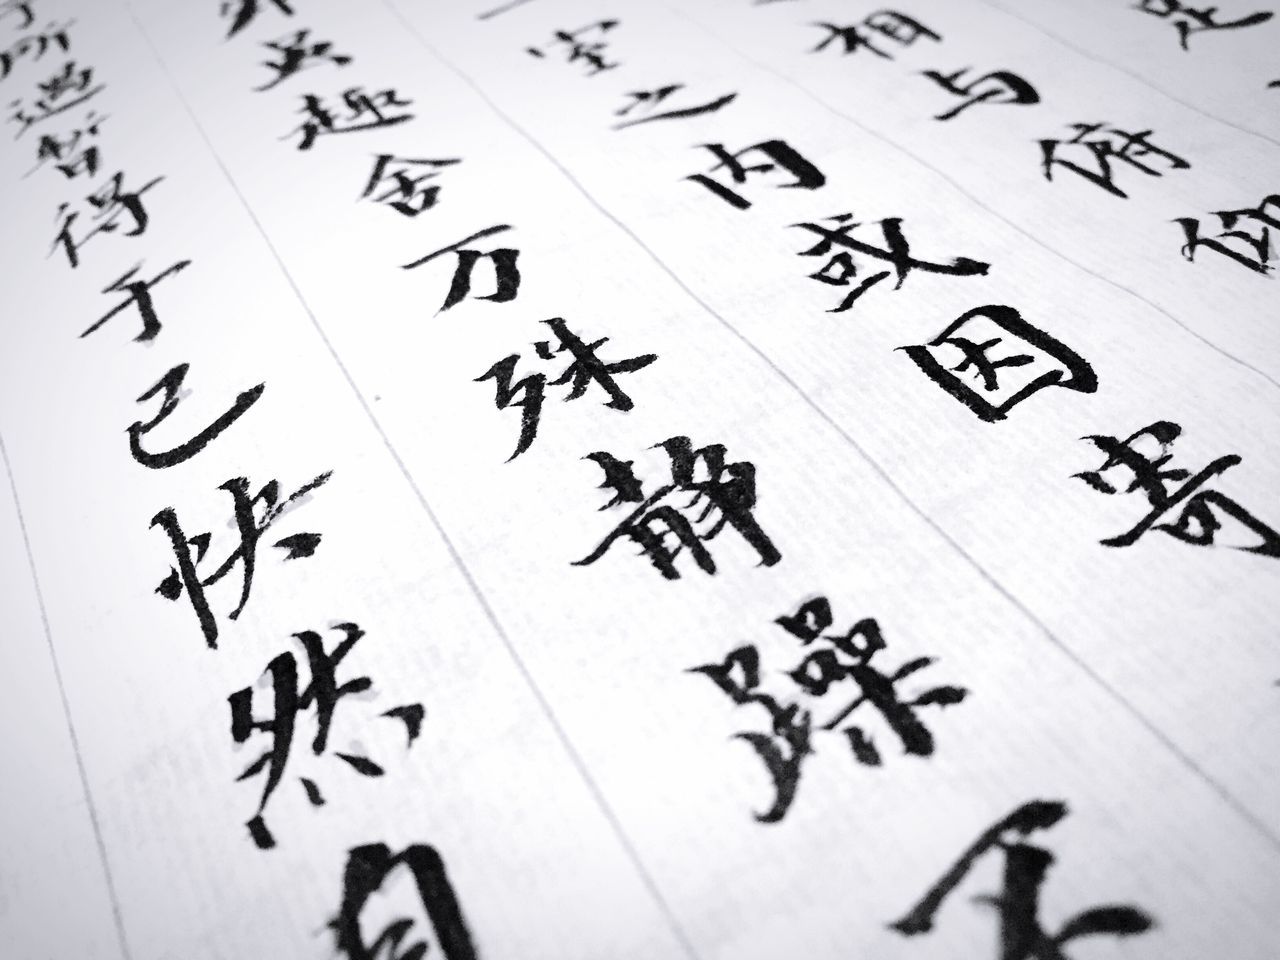 足
相与俯仰
一室之内或因寄
外虽趣舍万殊静躁不
于所遇暂得于己快然自